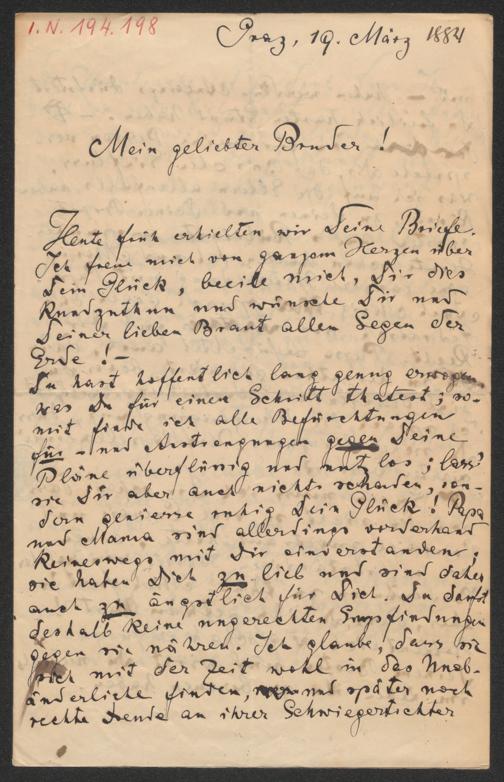 I.N. 194.198
Graz, 19. März 1884
Mein geliebter Bruder!
Heute früh erhielten wir Deine Briefe.
Ich freue mich von ganzem Herzen über
Dein Glück, beeile mich, Dir dies
kundzuthun und wünsche Dir und
Deiner lieben Braut allen Segen der
Erde! –
Du hast hoffentlich lang genug erwogen
was Du für einen Schritt thatest; so-
mit finde ich alle Befürchtungen
für – und Anstrengungen gegen Deine
Pläne überflüssig und nutzlos; lass'
sie Dir aber auch nichts schaden, son-
dern geniesse ruhig Dein Glück! Papa
und Mama sind allerdings vorderhand
keineswegs mit Dir einverstanden,
sie haben Dich zu lieb und sind daher
auch zu ängstlich für Dich. Du darfst
deshalb keine ungerechten Empfindungen
gegen sie nähren. Ich glaube, dass sie
sich mit der Zeit wohl in das Unab-
änderliche finden, und später noch
rechte Freude an ihrer Schwiegertochter